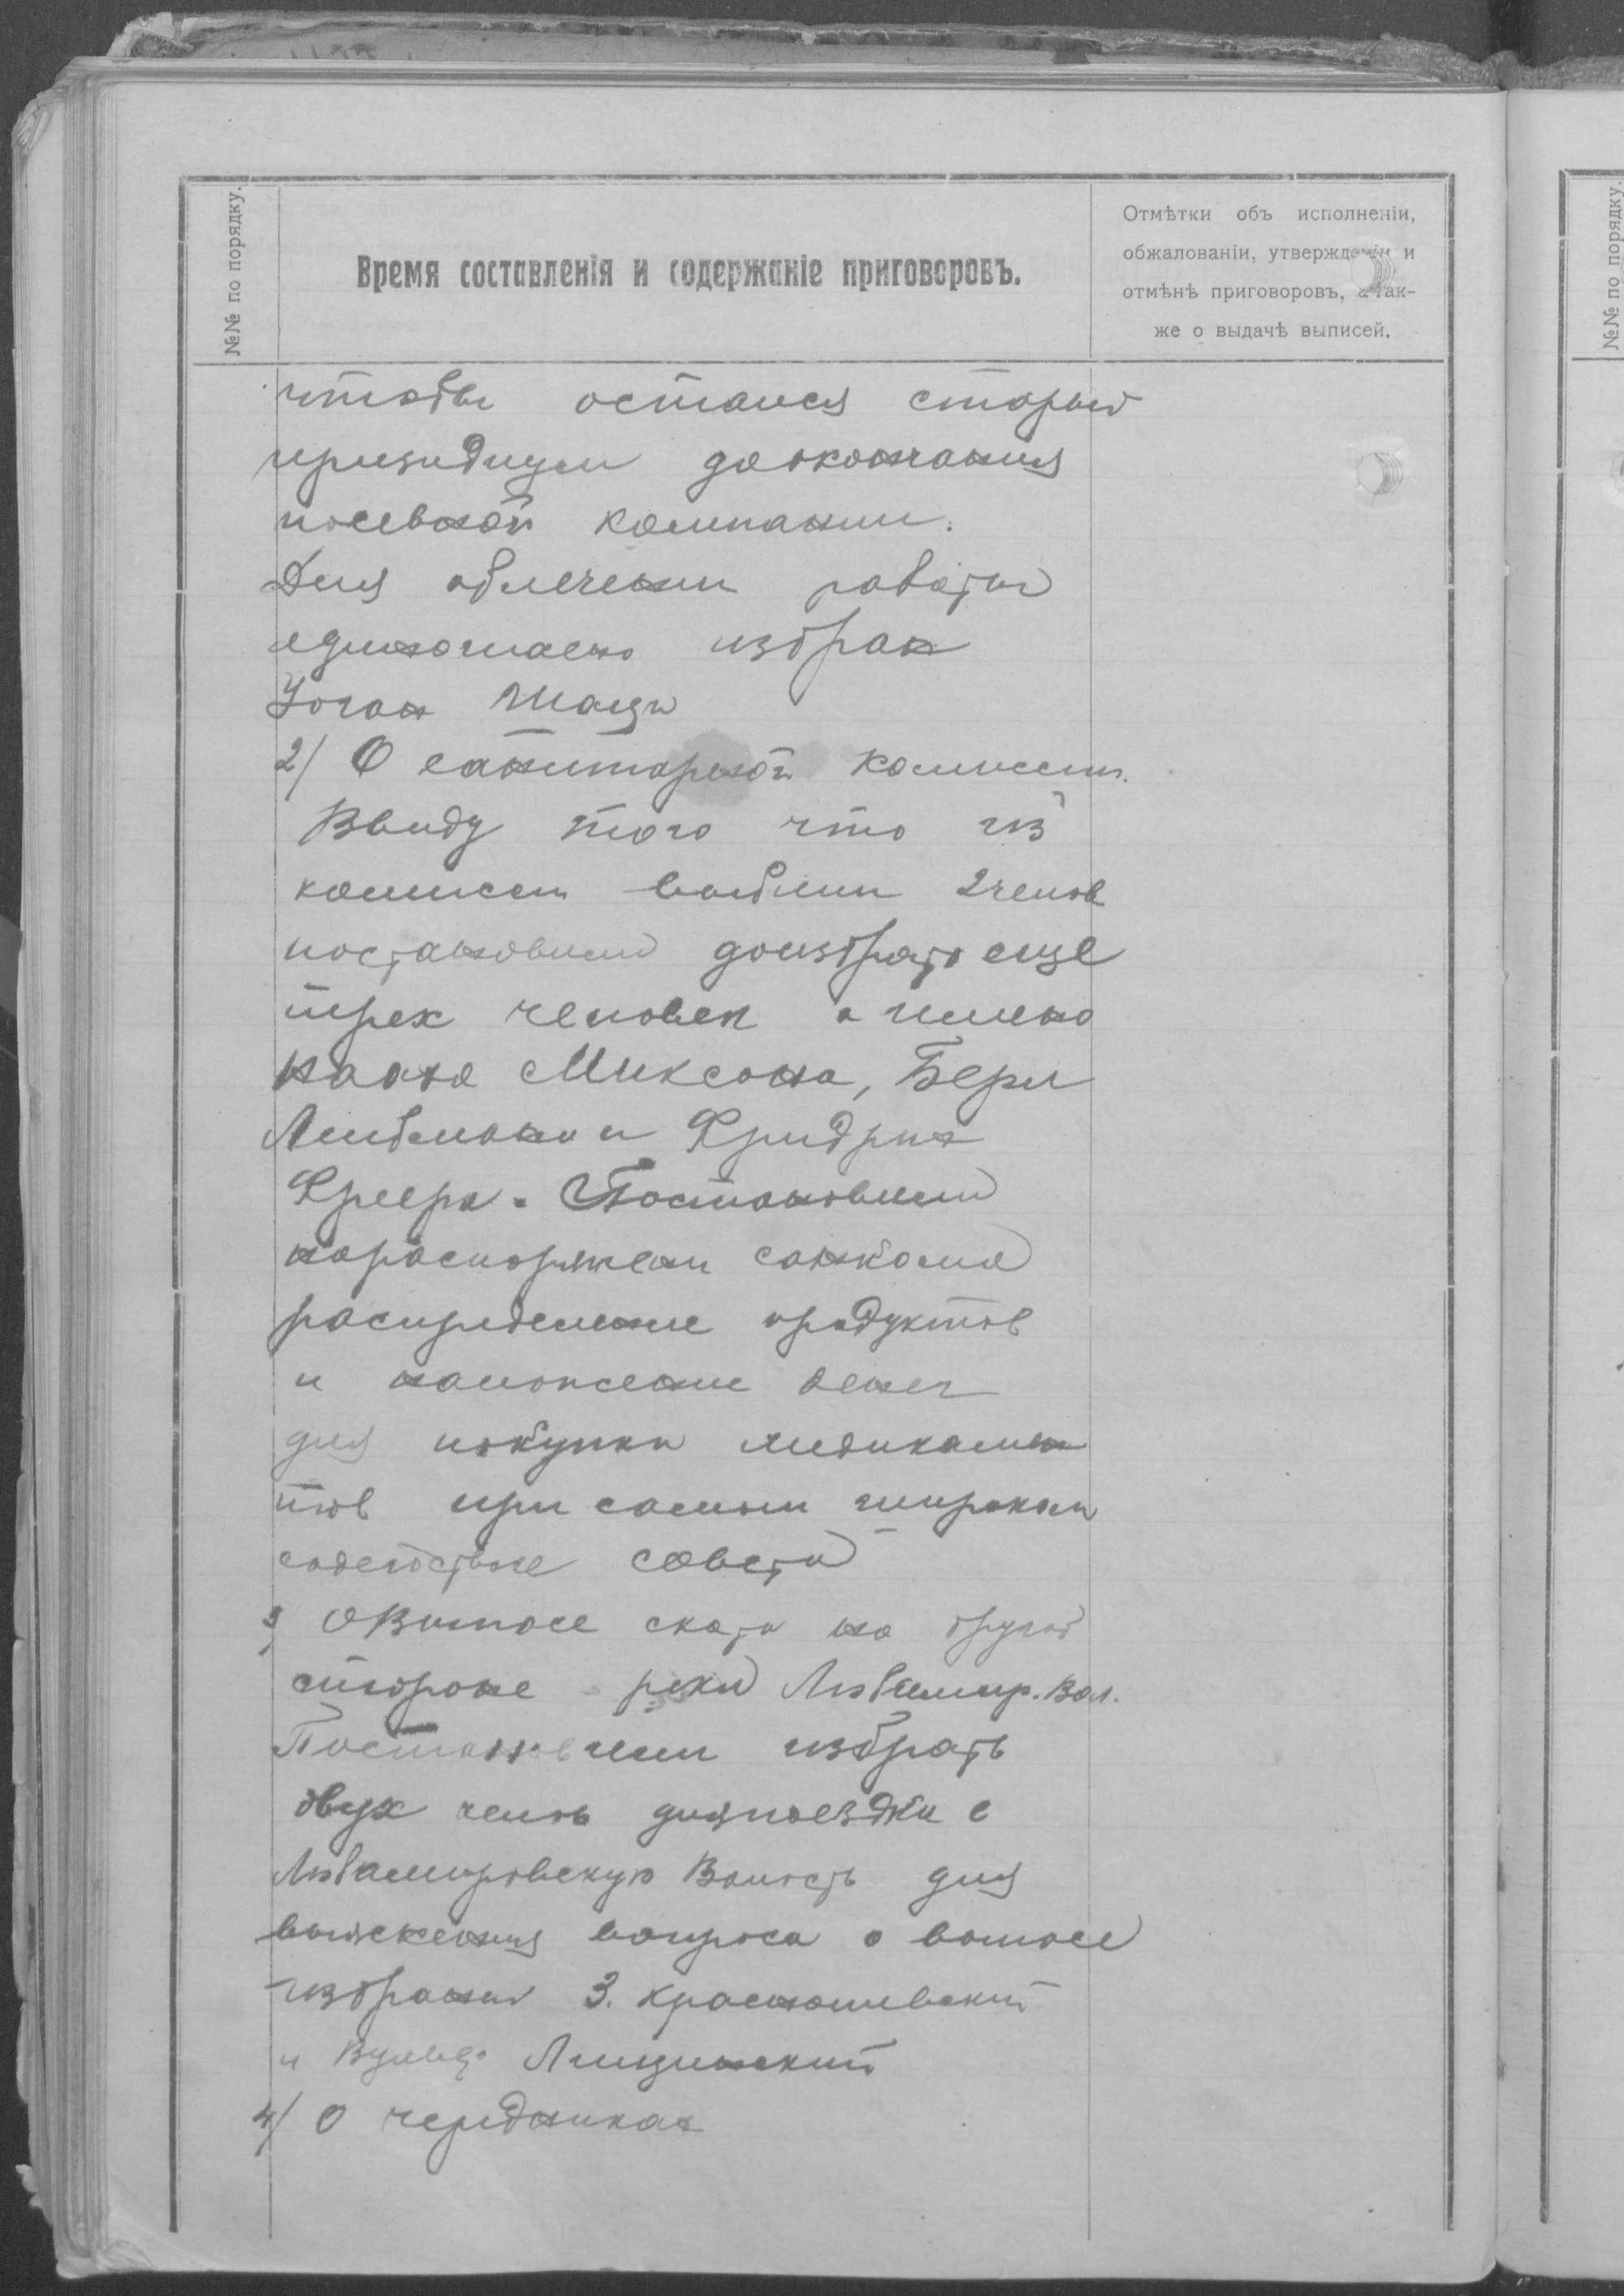 №№ по порядку.
Время составленія и содержаніе приговоровъ.
Отмѣтки объ исполненіи,
обжалованіи, утвержденіи и
отмѣнѣ приговоровъ, а так-
же о выдачѣ выписей.
чтобы остался старый
призидиум доокончания
посевной компании.
Для облечении работы
единогласно избран
Іоган
2/ О санитарной комиссии.
Ввиду того что из
комиссии выбыли 2 членов
постановили доизбрать еще
трех человек а имено
Миксона, Бери
Либмана и Фридрих
Фреера. Постановили
нараспоряжении санкома
распределение продуктов
и наложение денег
для покупки медикамен
тов при самым широком
содействие совета
3, О Вымосе ската на другой
стороне реки Любимир. Вол.
Постановили избрать
двух члень для поездки в
Любамировскую Волость для
выяснения вопроса о вымосе
избраны З. Красношевский
и Лищинский
4/ О чередниках
№№ по порядку.